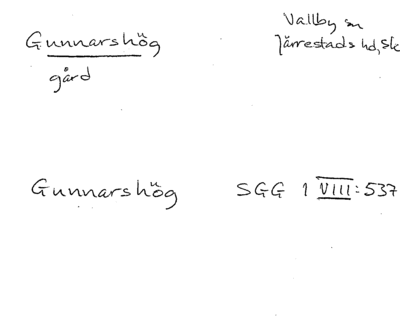 Gunnarshög
gård
Vallby sn
Järrestads hd, Sk
Gunnarshög SGG 1 VIII:537